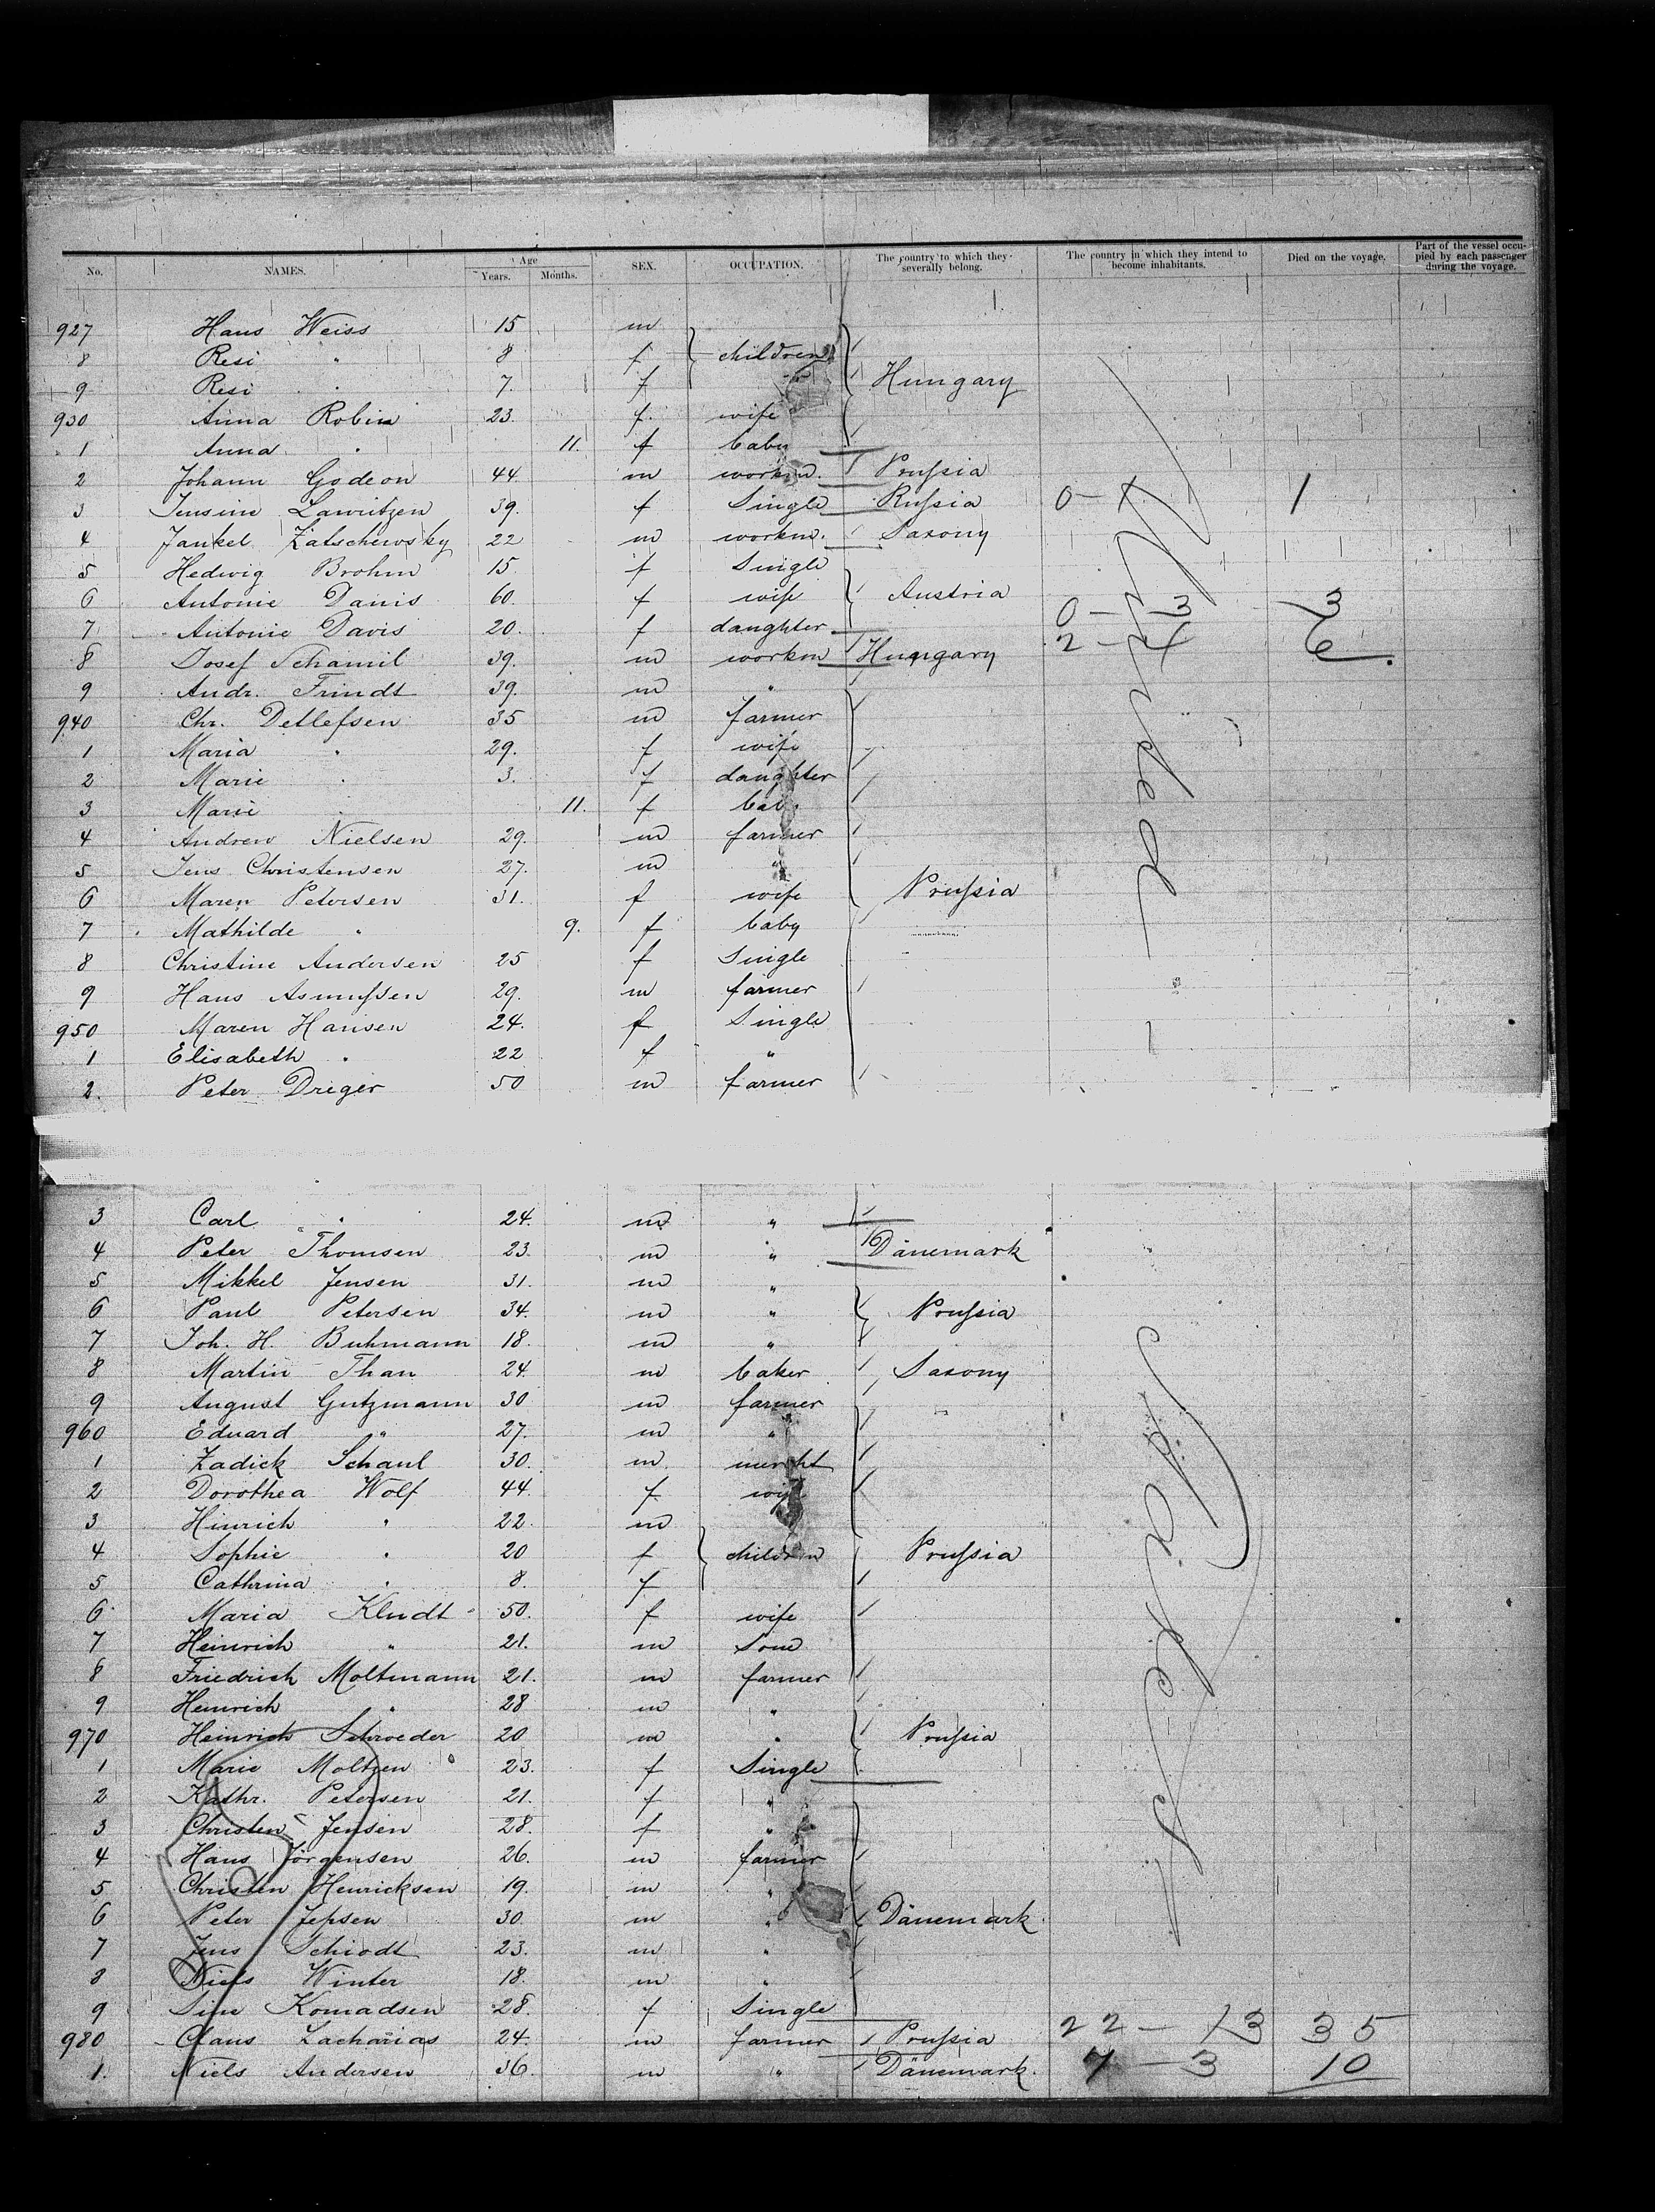 No. NAMES. Age Years. Months. SEX. OCCUPATION. The country to which they severally belong. The country in which they intend to become inhabitants. Died on the voyage. Part of the vessel occupied by each passenger during the voyage.
927 Hans Weiss 15 m
8 Resi " 8 f } children
9 Resi " 7. f Hungary
930 Anna Robin 23. f. wife
1 Anna " 11. f baby
2 Johann Godeon 44 m workm. Prussia
3 Jensine Lawritzen 39. f Single Russia 0 - 1 1
4 Jankel Zatschewsky 22 m workm. Saxony
5 Hedwig Brohm 15. f Single
6 Antonie Danis 60. f wife Austria 0 - 3 3
7 Antonie Davis 20. f daughter 2 - 4 6
8 Josef Schamil 39. m workm Hungary
9 Andr. Frindt 39. m "
940 Chr. Detlefsen 35 m farmer
1 Maria " 29. f wife
2 Marie " 3. f daughter
3 Marie " 11. f bab.
4 Andrew Nielsen 29. m farmer
5 Jens Christensen 27. m "
6 Maren Petersen 31. f wife Prussia
7 Mathilde " 9. f baby
8 Christine Andersen 25 f Single
9 Hans Asmussen 29. m farmer
950 Maren Hansen 24. f Single
1 Elisabeth " 22 f "
2. Peter Dreger 50 m farmer
United
3 Carl " 24. m "
4 Peter Thomsen 23. m " Dänemark
5 Mikkel Jensen 31. m "
6 Paul Petersen 34. m " Prussia
7 Joh. H. Buhmann 18. m "
8 Martin Than 24. m baker Saxony
9 August Gutzmann 30 m farmer
960 Eduard " 27. m "
1 Zadick Schaul 30. m mercht
2 Dorothea Wolf 44. f wife
3 Hinrich " 22. m
4 Sophie " 20 f } children Prussia
5 Cathrina " 8. f
6 Maria Kludt 50. f wife
7 Heinrich " 21. m Son
8 Friedrich Moltmann 21. m farmer
9 Heinrich " 28 m "
970 Heinrich Schroeder 20 m " Prussia
1 Marie Moltzen 23. f Single
2 Kathr. Petersen 21. f "
3 Christen Jensen 28. f "
4 Hans Jörgensen 26. m farmer
5 Christen Henricksen 19. m "
6 Peter Jepsen 30 m " Dänemark.
7 Jens Schiodt 23. m "
8 Niels Winter 18. m "
9 Sine Konradsen 28. f Single
980 Claus Zacharias 24. m farmer Prussia 22 - 13 35
1. Niels Andersen 36. m " Dänemark. 7 - 3 10
States